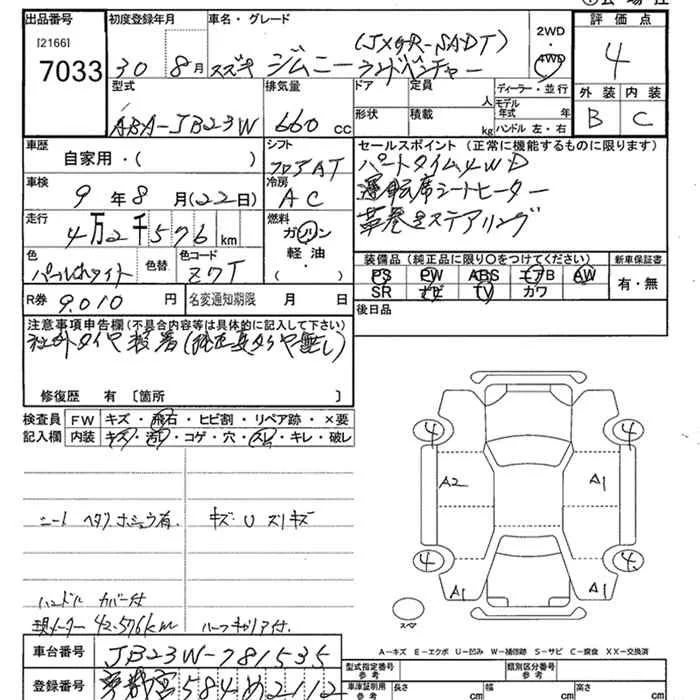 出品番号 初度登録年月 車名・グレード
[2166] 7033
30 8月 スズキ ジムニー ランドベンチャー
2WD・4WD
評価点
4
外装 内装
B C
型式 排気量 ドア 定員 人 ディーラー・並行
ABA-JB23W 660 cc
形状 積載 kg
モデル年式 年
ハンドル 左・右
車歴 自家用・( )
シフト フロアAT
セールスポイント(正常に機能するものに限ります)
パートタイム4WD
運転席シートヒーター
革巻きステアリング
車検 9年8月(22日)
冷房 AC
走行 4万2千576km
燃料 ガソリン 軽油・( )
色 パールホワイト 色替 色コード Z7T
装備品(純正品に限り〇をつけてください) 新車保証書
PS PW ABS エアB AW 有・無
SR ナビ TV カワ
R券 9,010円 名変通知期限 月 日
後日品
注意事項申告欄(不具合内容等は具体的に記入して下さい)
社外タイヤ装着(純正タイヤ無し)
修復歴 有 [箇所 ]
検査員記入欄 FW キズ・飛石・ヒビ割・リペア跡・×要
内装 キズ・汚レ・コゲ・穴・スレ・キレ・破レ
4 4
A2 A1
4 4
A1 A1
スペア
シート ヘタリ ホシュウ有. キズ・U スリキズ
ハンドル カバー付
現メーター 42,576km ルーフキャリア付.
A-キズ E-エクボ U-凹み W-補修跡 S-サビ C-腐食 XX-交換済
車台番号 JB23W-781535
登録番号 584 め 2112
型式指定番号 参考 類別区分番号 参考
車庫証明用 参考 長さ cm 幅 cm 高さ cm